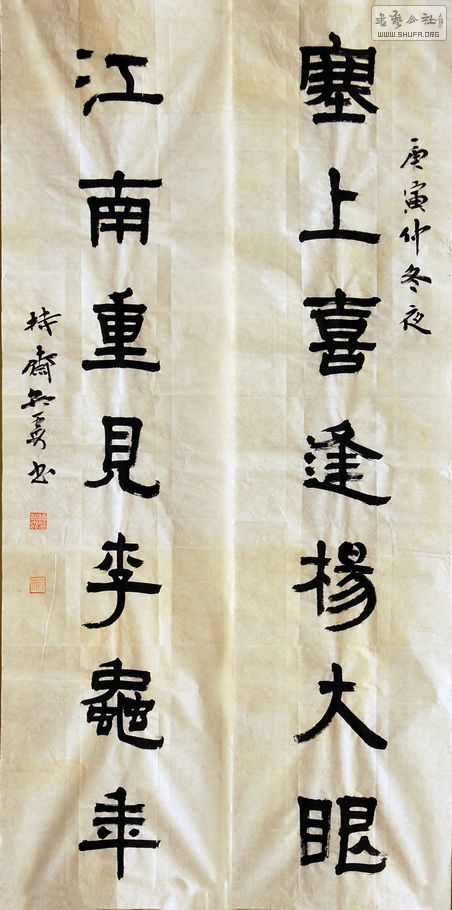 書藝公社
WWW.SHUFA.ORG
庚寅仲冬夜
塞上喜逢楊大眼
江南重見李龜年
齋 书